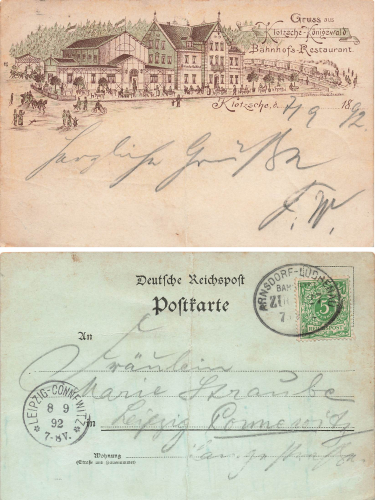 Gruss aus
Klotzsche-Königswald
Bahnhofs-Restaurant.
Klotzsche, d. 7/9 1892
Herzliche Grüße
F. W.
Deutsche Reichspost
Postkarte
ARNSDORF-LÜBBENAU
BAH
ZUG
5
REICHSPOST
An
Fräulein
Marie Straube
in Leipzig Connewitz
Wohnung
(Straße und Hausnummer)
LEIPZIG-CONNEWITZ
8 9
92
7-8V.